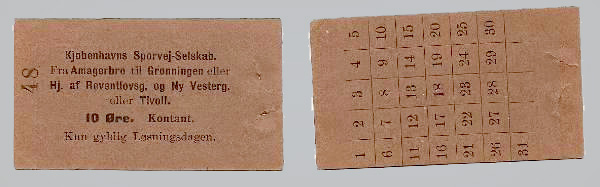 48
Kjøbenhavns Sporvej-Selskab.
Fra Amagerbro til Grønningen eller
Hj. af Reventlovsg. og Ny Vesterg.
eller Tivoli.
10 Øre. Kontant.
Kun gyldig Løsningsdagen.
5 10 15 20 25 30
4 9 14 19 24 29
3 8 13 18 23 28
2 7 12 17 22 27
1 6 11 16 21 26 31